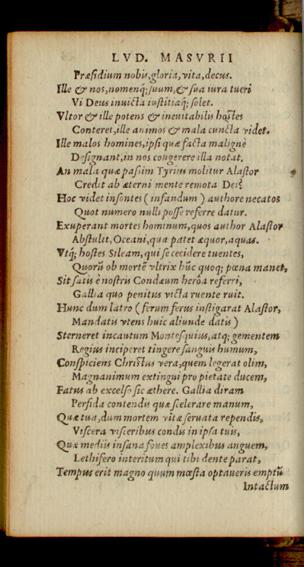 LVD. MASVRII
Præsidium nobis, gloria, vita, decus.
Ille & nos, nomenq; suum, & sua iura tueri
Vi Deus inuicta iustitiaq; solet.
Vltor & ille potens & ineuitabilis hostes
Conteret, ille animos & mala cuncta videt.
Ille malos homines, ipsi quæ facta malignè
Designant, in nos congerere illa notat.
An mala quæ passim Tyrius molitur Alastor
Credit ab æterni mente remota Dei?
Hoc videt insontes (infandum) authore necatos
Quot numero nulli posse referre datur.
Exuperant mortes hominum, quos author Alastor
Abstulit, Oceani, qua patet æquor, aquas.
Vtq; hostes Sileam, qui se cecidere tuentes,
Quorũ ob mortẽ vltrix hũc quoq; pœna manet,
Sit satis è nostris Condæum heröa referri,
Gallia quo penitus victa ruente ruit.
Hunc dum latro (ferum ferus instigarat Alastor,
Mandatis vtens huic aliunde datis)
Sterneret incautum Montesquius, atq; gementem
Regius inciperet tingere sanguis humum,
Conspiciens Christus vera, quem legerat olim,
Magnanimum extingui pro pietate ducem,
Fatus ab excelso sic æthere. Gallia diram
Perfida contendis quæ scelerare manum,
Quæ tua, dum mortem vita seruata rependis,
Viscera visceribus condis in ipsa tuis,
Quæ mediis insana foues amplexibus anguem,
Lethifero interitum qui tibi dente parat,
Tempus erit magno quum mœsta optaueris emptũ
Intactum